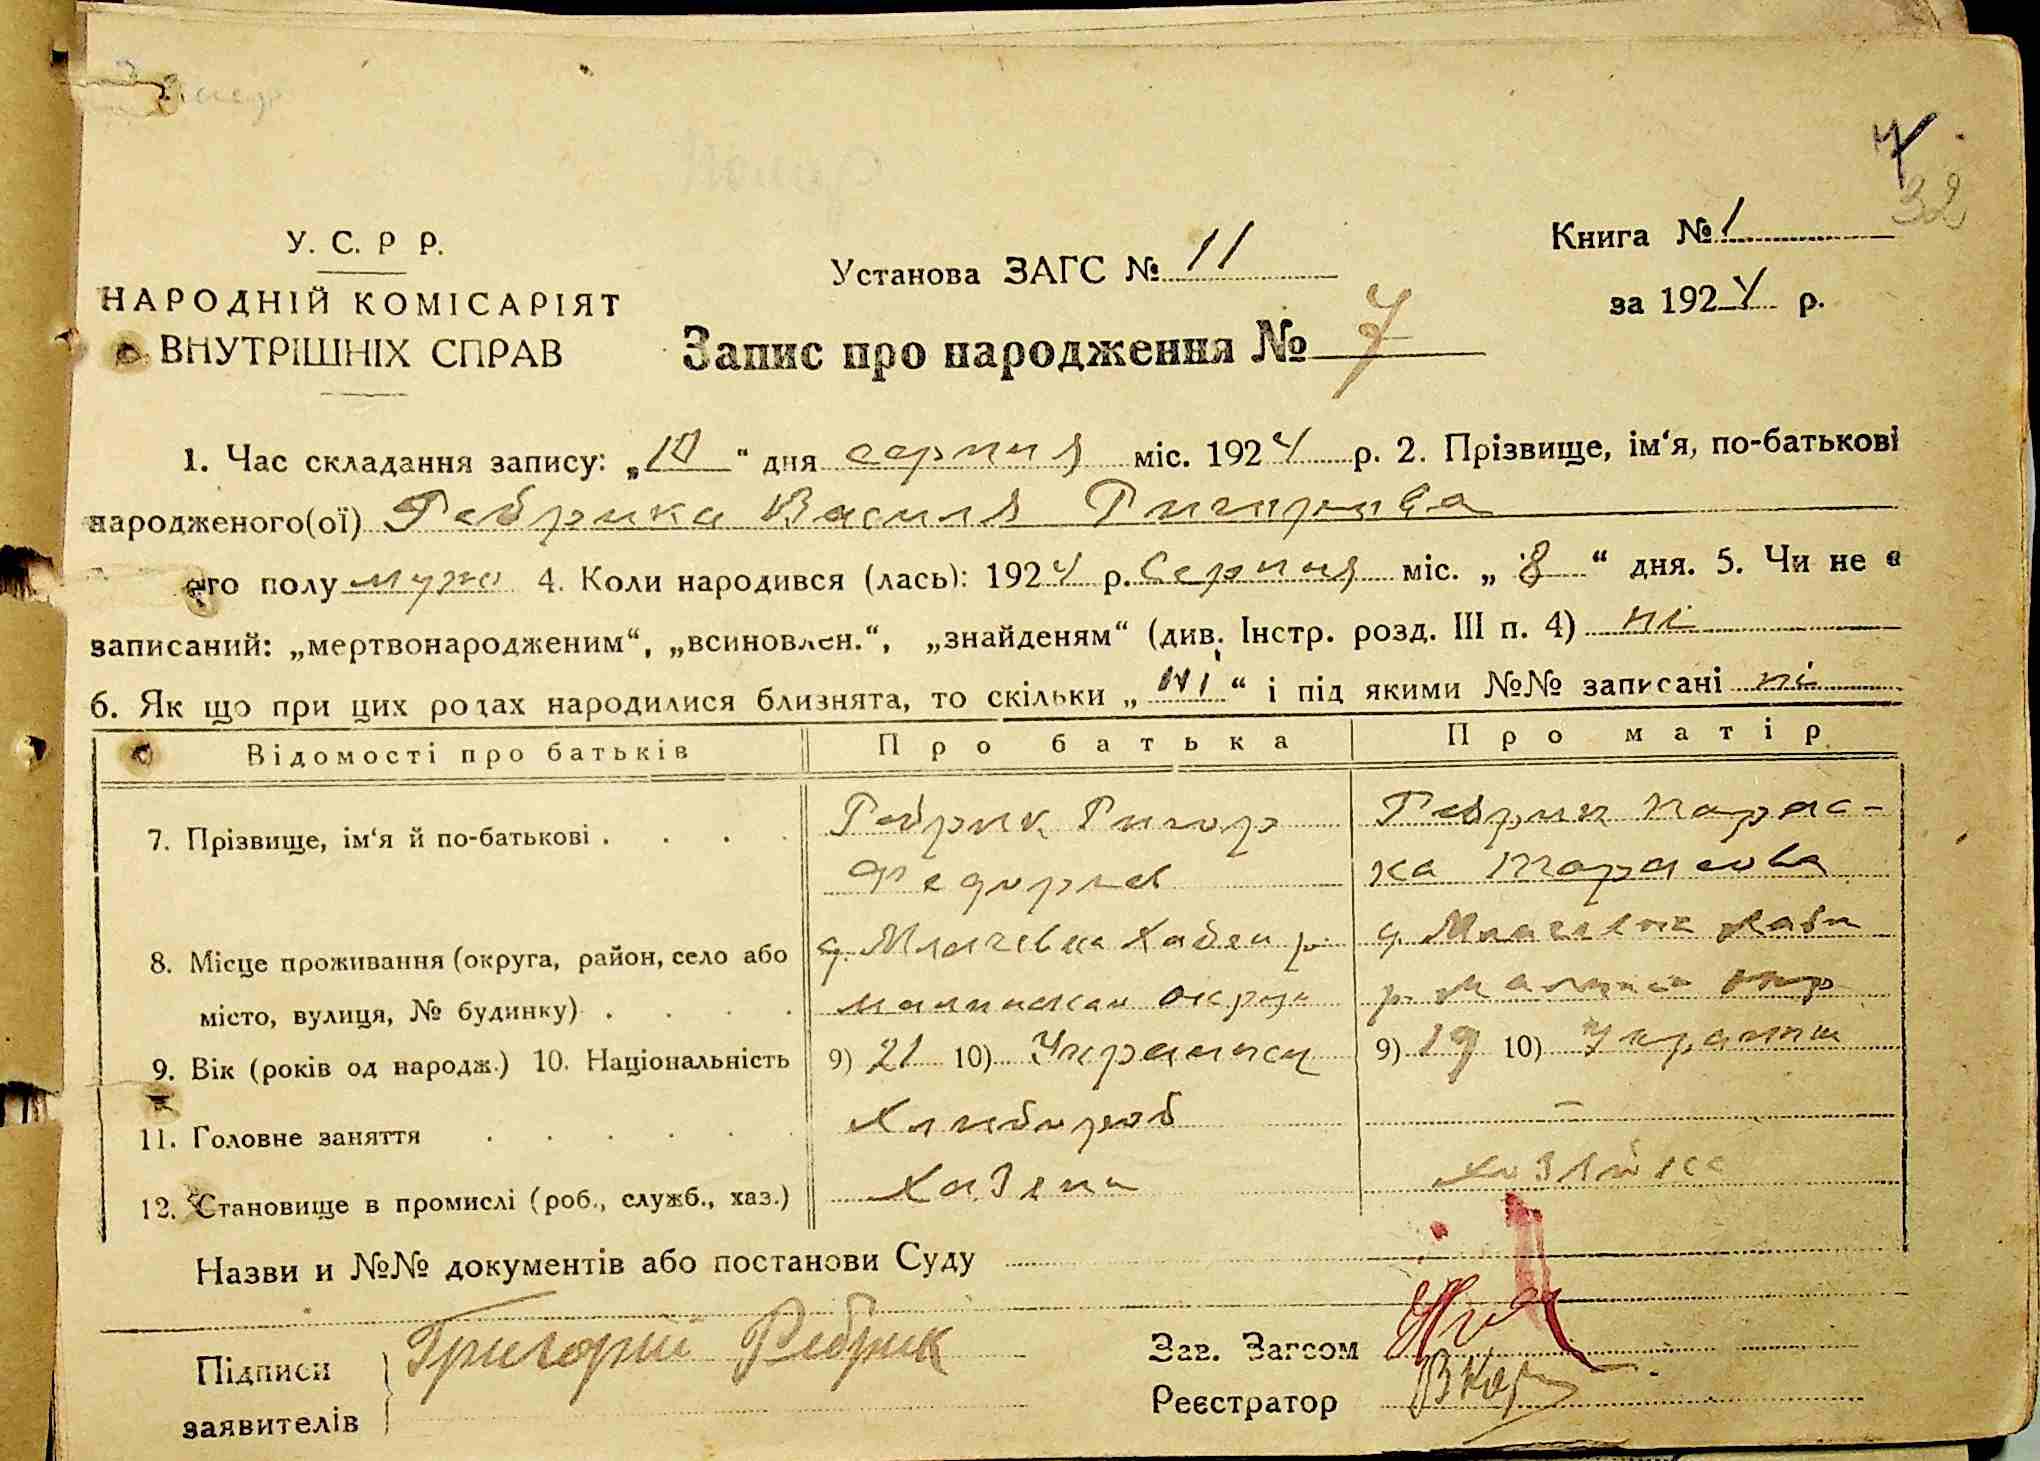 7
32
У. С. Р Р.
НАРОДНІЙ КОМІСАРІЯТ
ВНУТРІШНІХ СПРАВ
Установа ЗАГС № 11
Книга № 1
за 1924 р.
Запис про народження № 7
1. Час складання запису: „10" дня серпня міс. 1924 р. 2. Прізвище, ім‘я, по-батькові
народженого(ої) Ребрика Василя
его полу муж 4. Коли народився (лась): 1924 р. Серпня міс. „8“ дня. 5. Чи не є
записаний: „мертвонародженим“, „всиновлен.“, „знайденям“ (див. Інстр. розд. III п. 4) ні
6. Як що при цих родах народилися близнята, то скільки „ні“ і під якими №№ записані ні
Відомості про батьків Про батька Про матір
7. Прізвище, ім‘я й по-батькові . . . . Ребрик Ригор Ребрик Парас-
Федорів ка Тарасова
8. Місце проживання (округа, район, село або
місто, вулиця, № будинку) . . . .
9. Вік (років од народж.) 10. Національність 9) 21 10) 9) 19 10)
11. Головне заняття . . . . . Хлибороб —
12. Становище в промислі (роб., служб., хаз.) Хазяин хозяйка
Назви и №№ документів або постанови Суду
Підписи Григорий Ребрик Зав. Загсом
заявителів Реєстратор